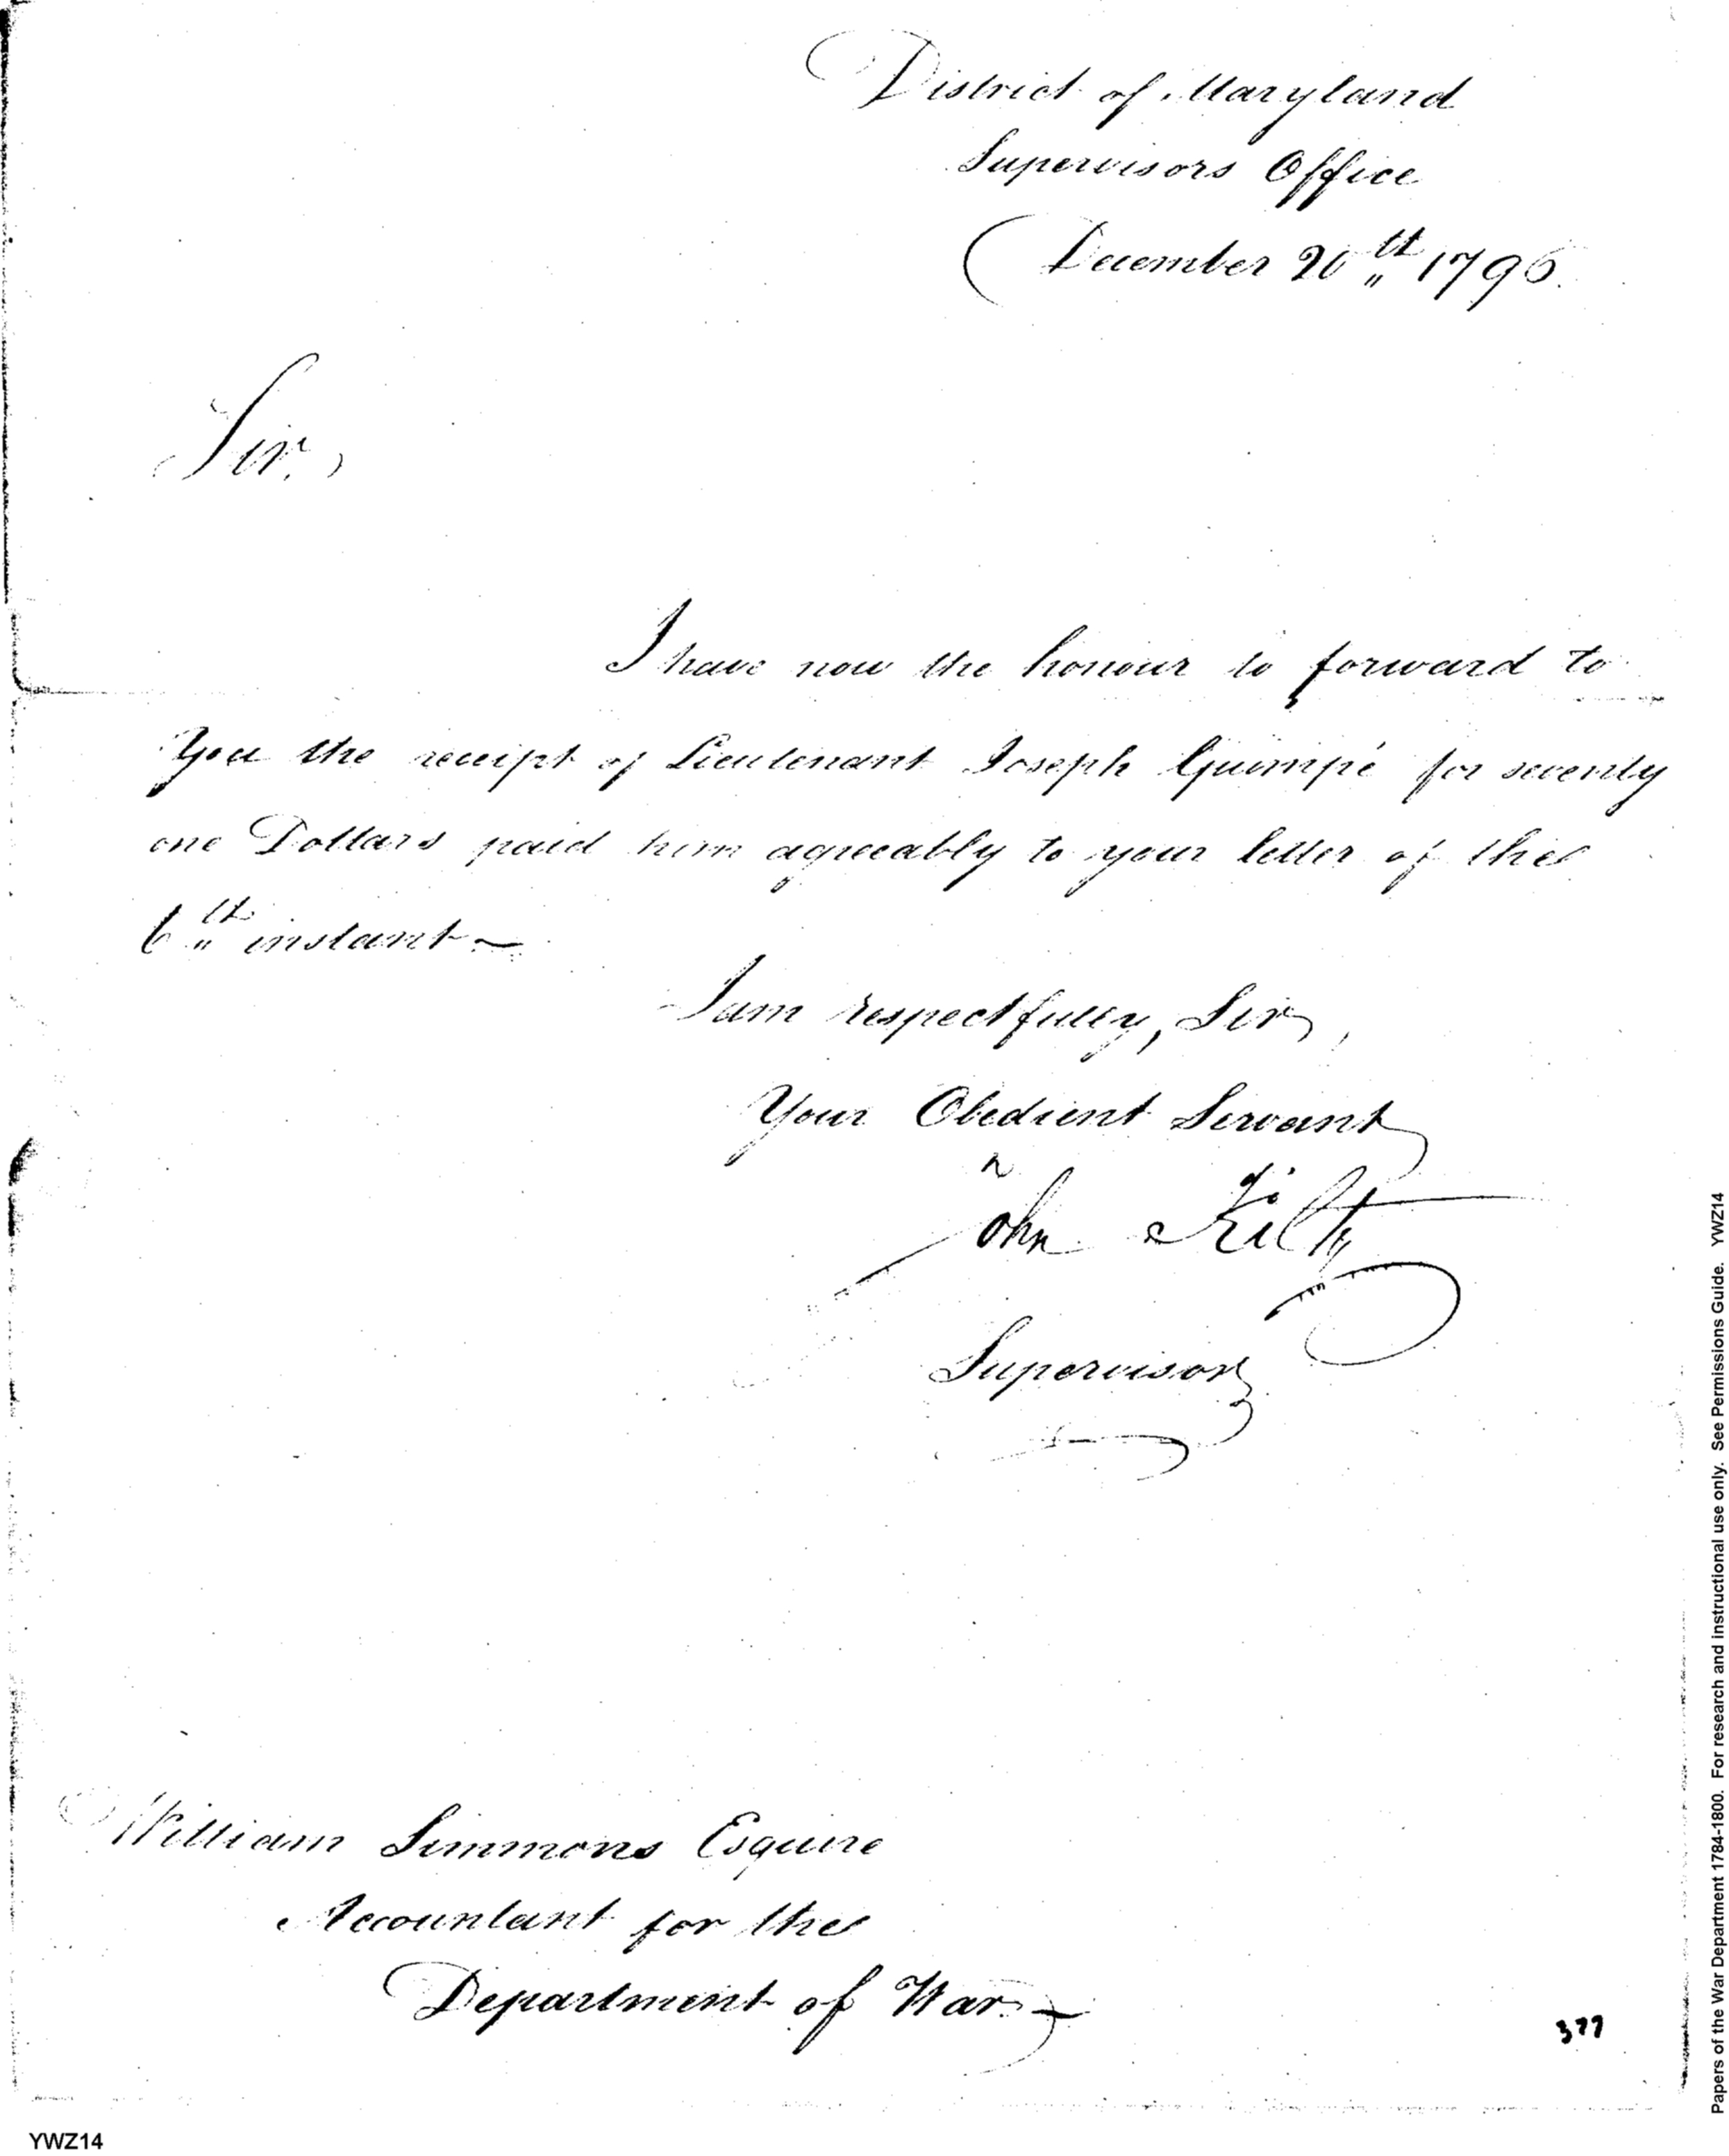 District of Maryland
Supervisors Office
December 20th 1796.
Sir,
I have now the honour to forward to
You the receipt of Lieutenant Joseph Guimpé for seventy
one Dollars paid him agreeably to your letter of the
6th instant —
I am respectfully, Sir,
Your Obedient Servant
John Kilty
Supervisor
William Simmons Esquire
Accountant for the
Department of War —
377
YWZ14
Papers of the War Department 1784-1800. For research and instructional use only. See Permissions Guide. YWZ14